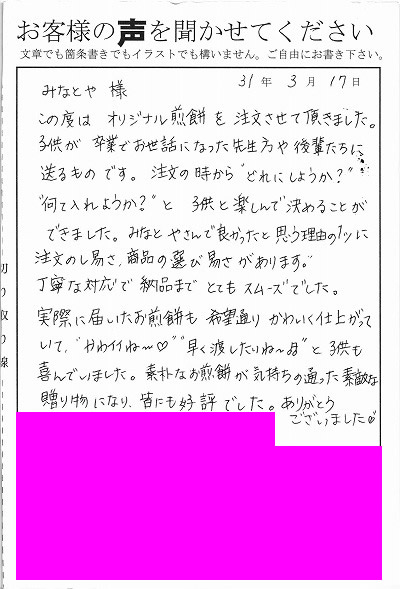 お客様の声を聞かせてください
文章でも箇条書きでもイラストでも構いません。ご自由にお書き下さい。
31年 3月 17日
みなとや 様
この度は オリジナル煎餅を 注文させて頂きました。
子供が 卒業でお世話になった先生方や後輩たちに
送るものです。 注文の時から "どれにしようか?"
"何て入れようか?" と 子供と楽しんで決めることが
できました。みなとやさんで良かったと思う理由の1つに
注文のし易さ、商品の選び易さがあります。
丁寧な対応で 納品まで とてもスムーズでした。
実際に届いたお煎餅も 希望通り かわいく仕上がって
いて、"かわイイね〜♡" "早く渡したいね〜" と子供も
喜んでいました。素朴なお煎餅が気持ちの通った素敵な
贈り物になり、皆にも好評でした。ありがとう
ございました♡
切り取り線